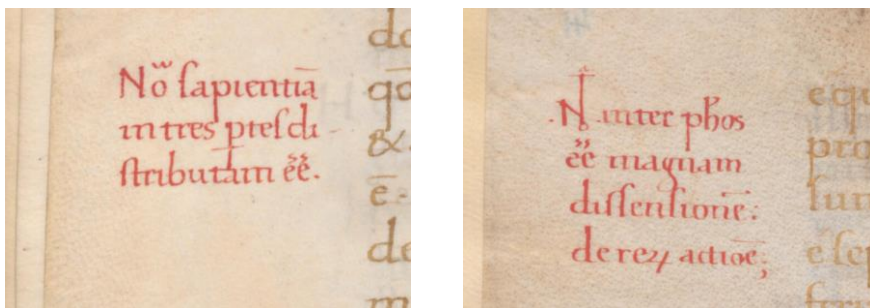 Nō sapientiā
in tres ptes di
stributam ēē.
do
qđ
&.
ē.
de
.N. inter phos
ēē magnam
dissensionē:
de reꝝ actiōe;
equ
pro
sun
e sep